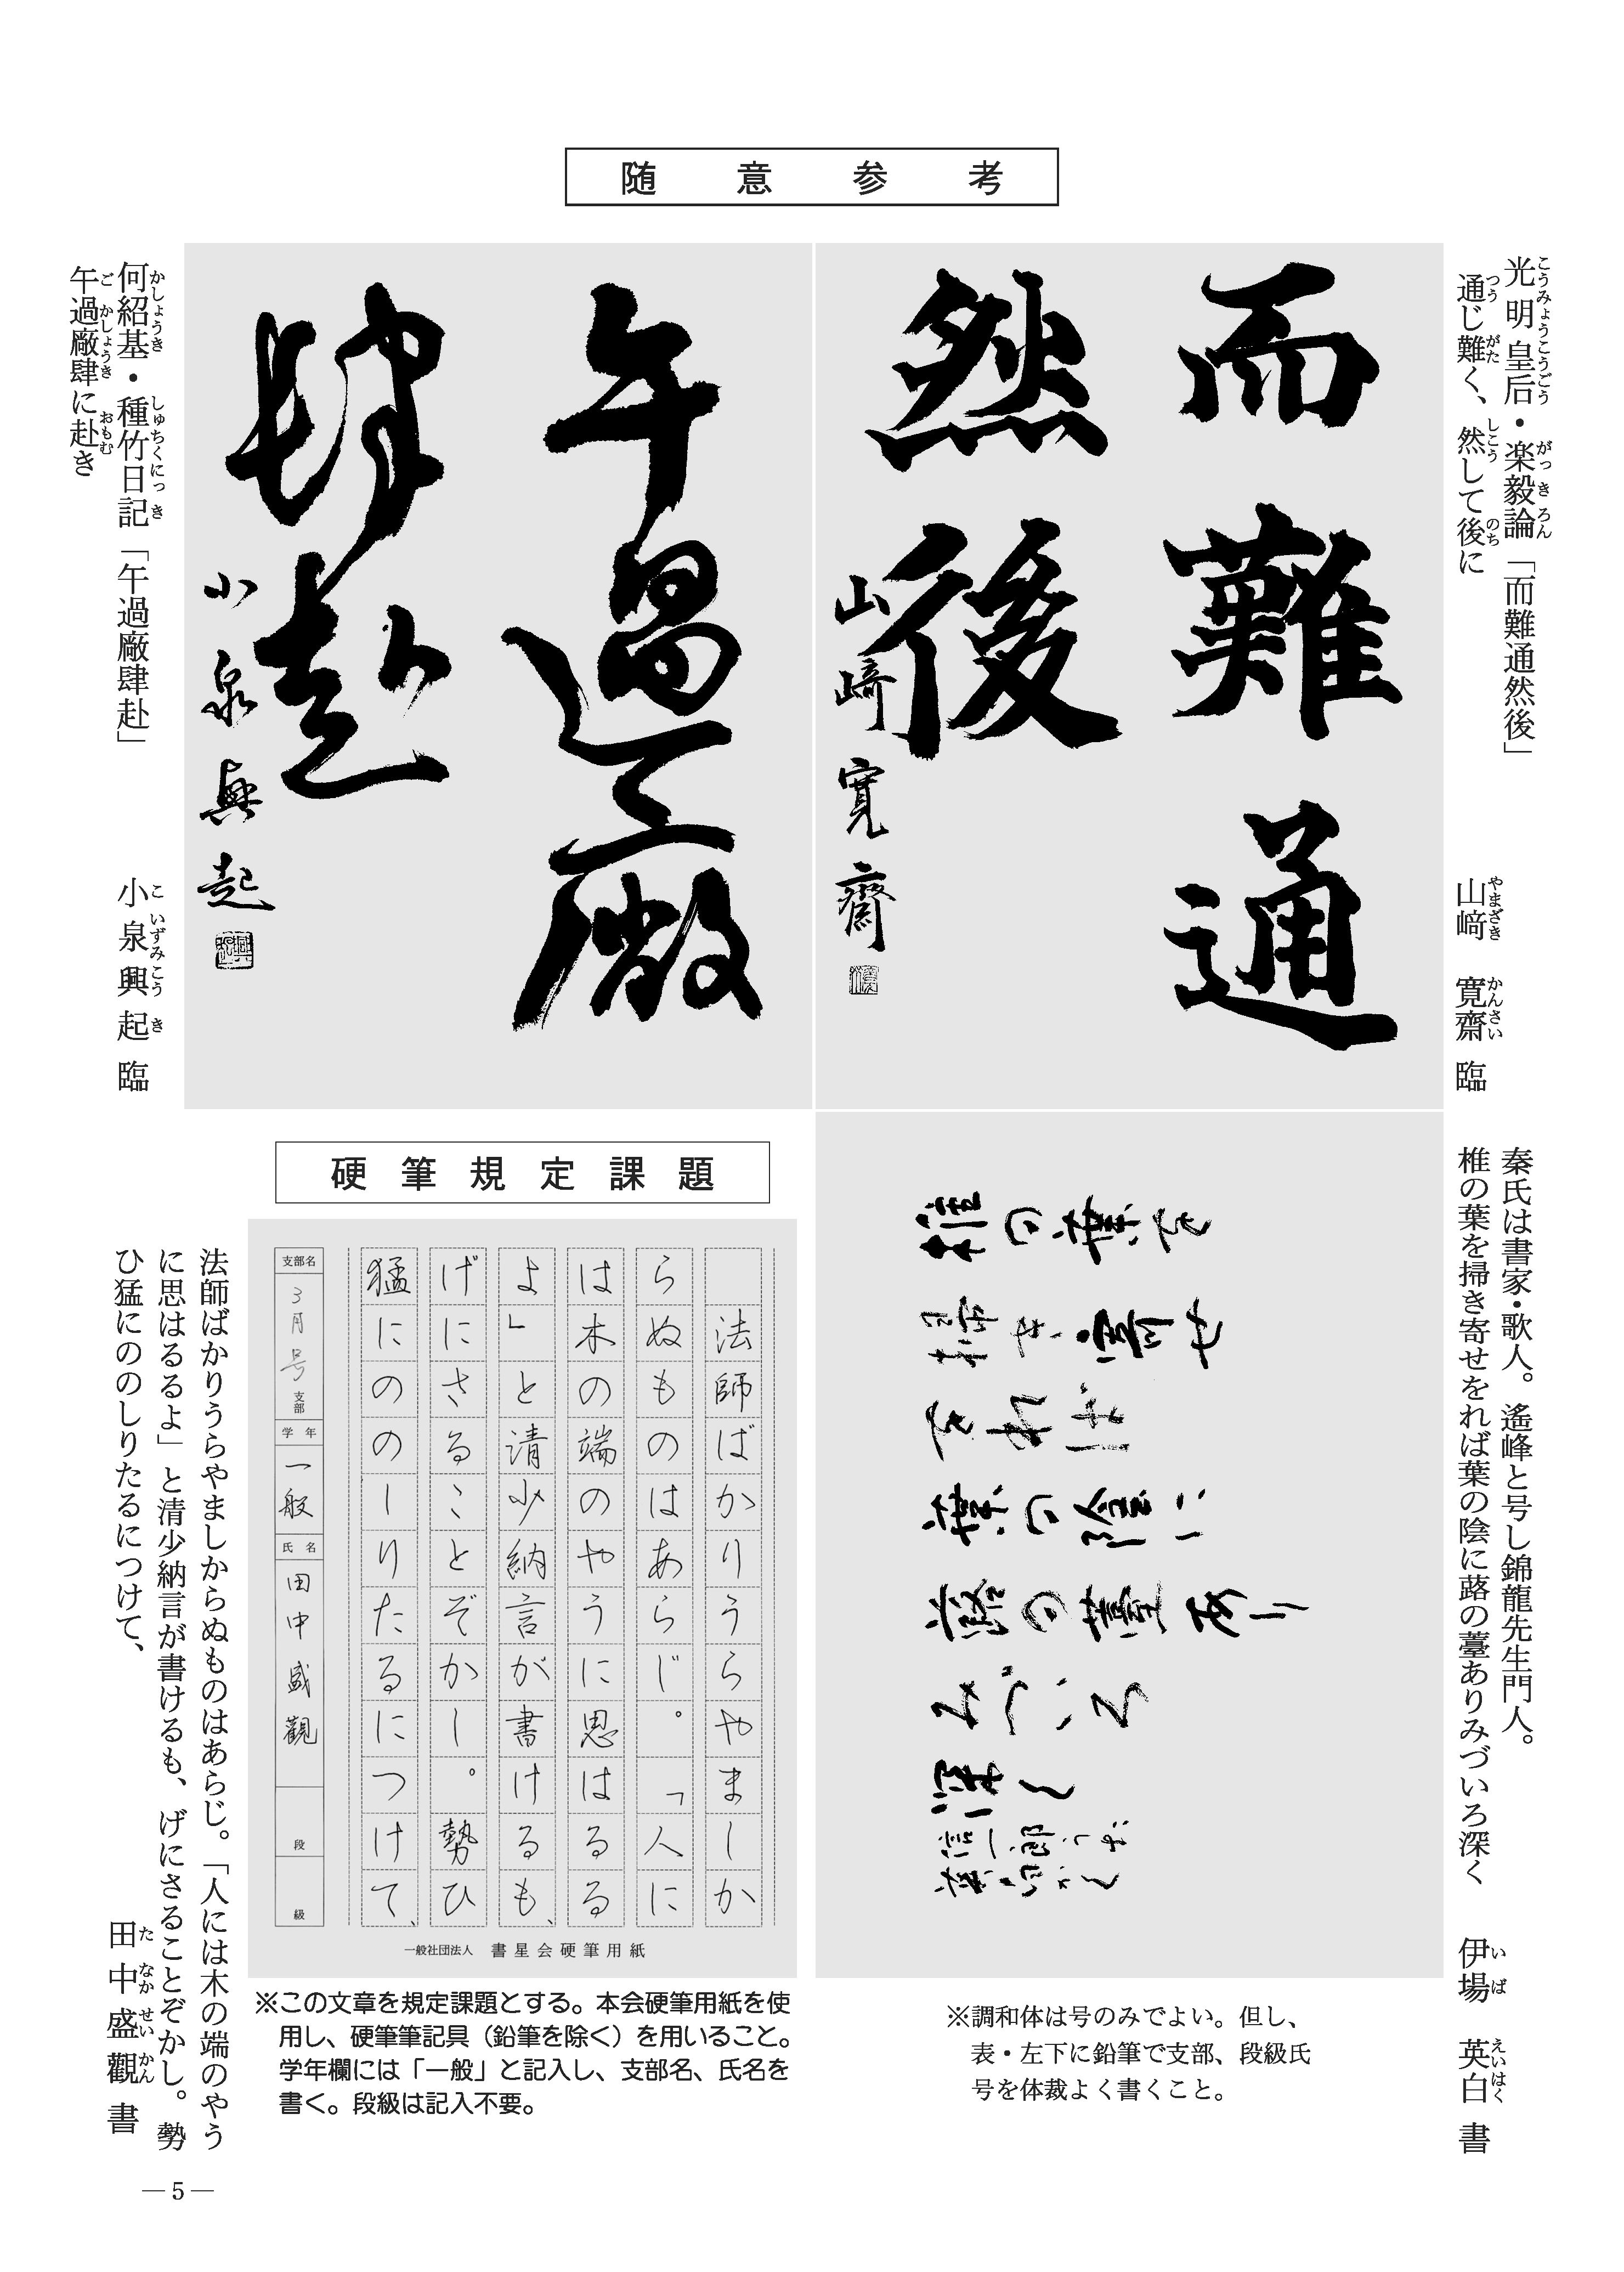 随意参考
光明皇后・楽毅論「而難通然後」
こうみょうこうごう がっきろん
通じ難く、然して後に
つう がた しこう のち
山﨑 寛齋 臨
やまざき かんさい
而難通
然後
山﨑寛齋
午過廠
肆赴
小泉興起
何紹基・種竹日記「午過廠肆赴」
かしょうき しゅちくにっき
午過廠肆に赴き
ご かしょうき おもむ
小泉興起 臨
こいずみこうき
秦氏は書家・歌人。遙峰と号し錦龍先生門人。
椎の葉を掃き寄せをれば葉の陰に蕗の薹ありみづいろ深く
伊場 英白 書
いば えいはく
※調和体は号のみでよい。但し、
表・左下に鉛筆で支部、段級氏
号を体裁よく書くこと。
硬筆規定課題
法師ばかりうらやましか
らぬものはあらじ。「人に
は木の端のやうに思はるる
よ」と清少納言が書けるも、
げにさることぞかし。勢ひ
猛にののしりたるにつけて、
支部名
3月号
支部
学年
一般
氏名
田中盛觀
段
級
一般社団法人 書星会硬筆用紙
※この文章を規定課題とする。本会硬筆用紙を使
用し、硬筆筆記具（鉛筆を除く）を用いること。
学年欄には「一般」と記入し、支部名、氏名を
書く。段級は記入不要。
法師ばかりうらやましからぬものはあらじ。「人には木の端のやう
に思はるるよ」と清少納言が書けるも、げにさることぞかし。勢
ひ猛にののしりたるにつけて、
田中盛觀 書
たなかせいかん
― 5 ―